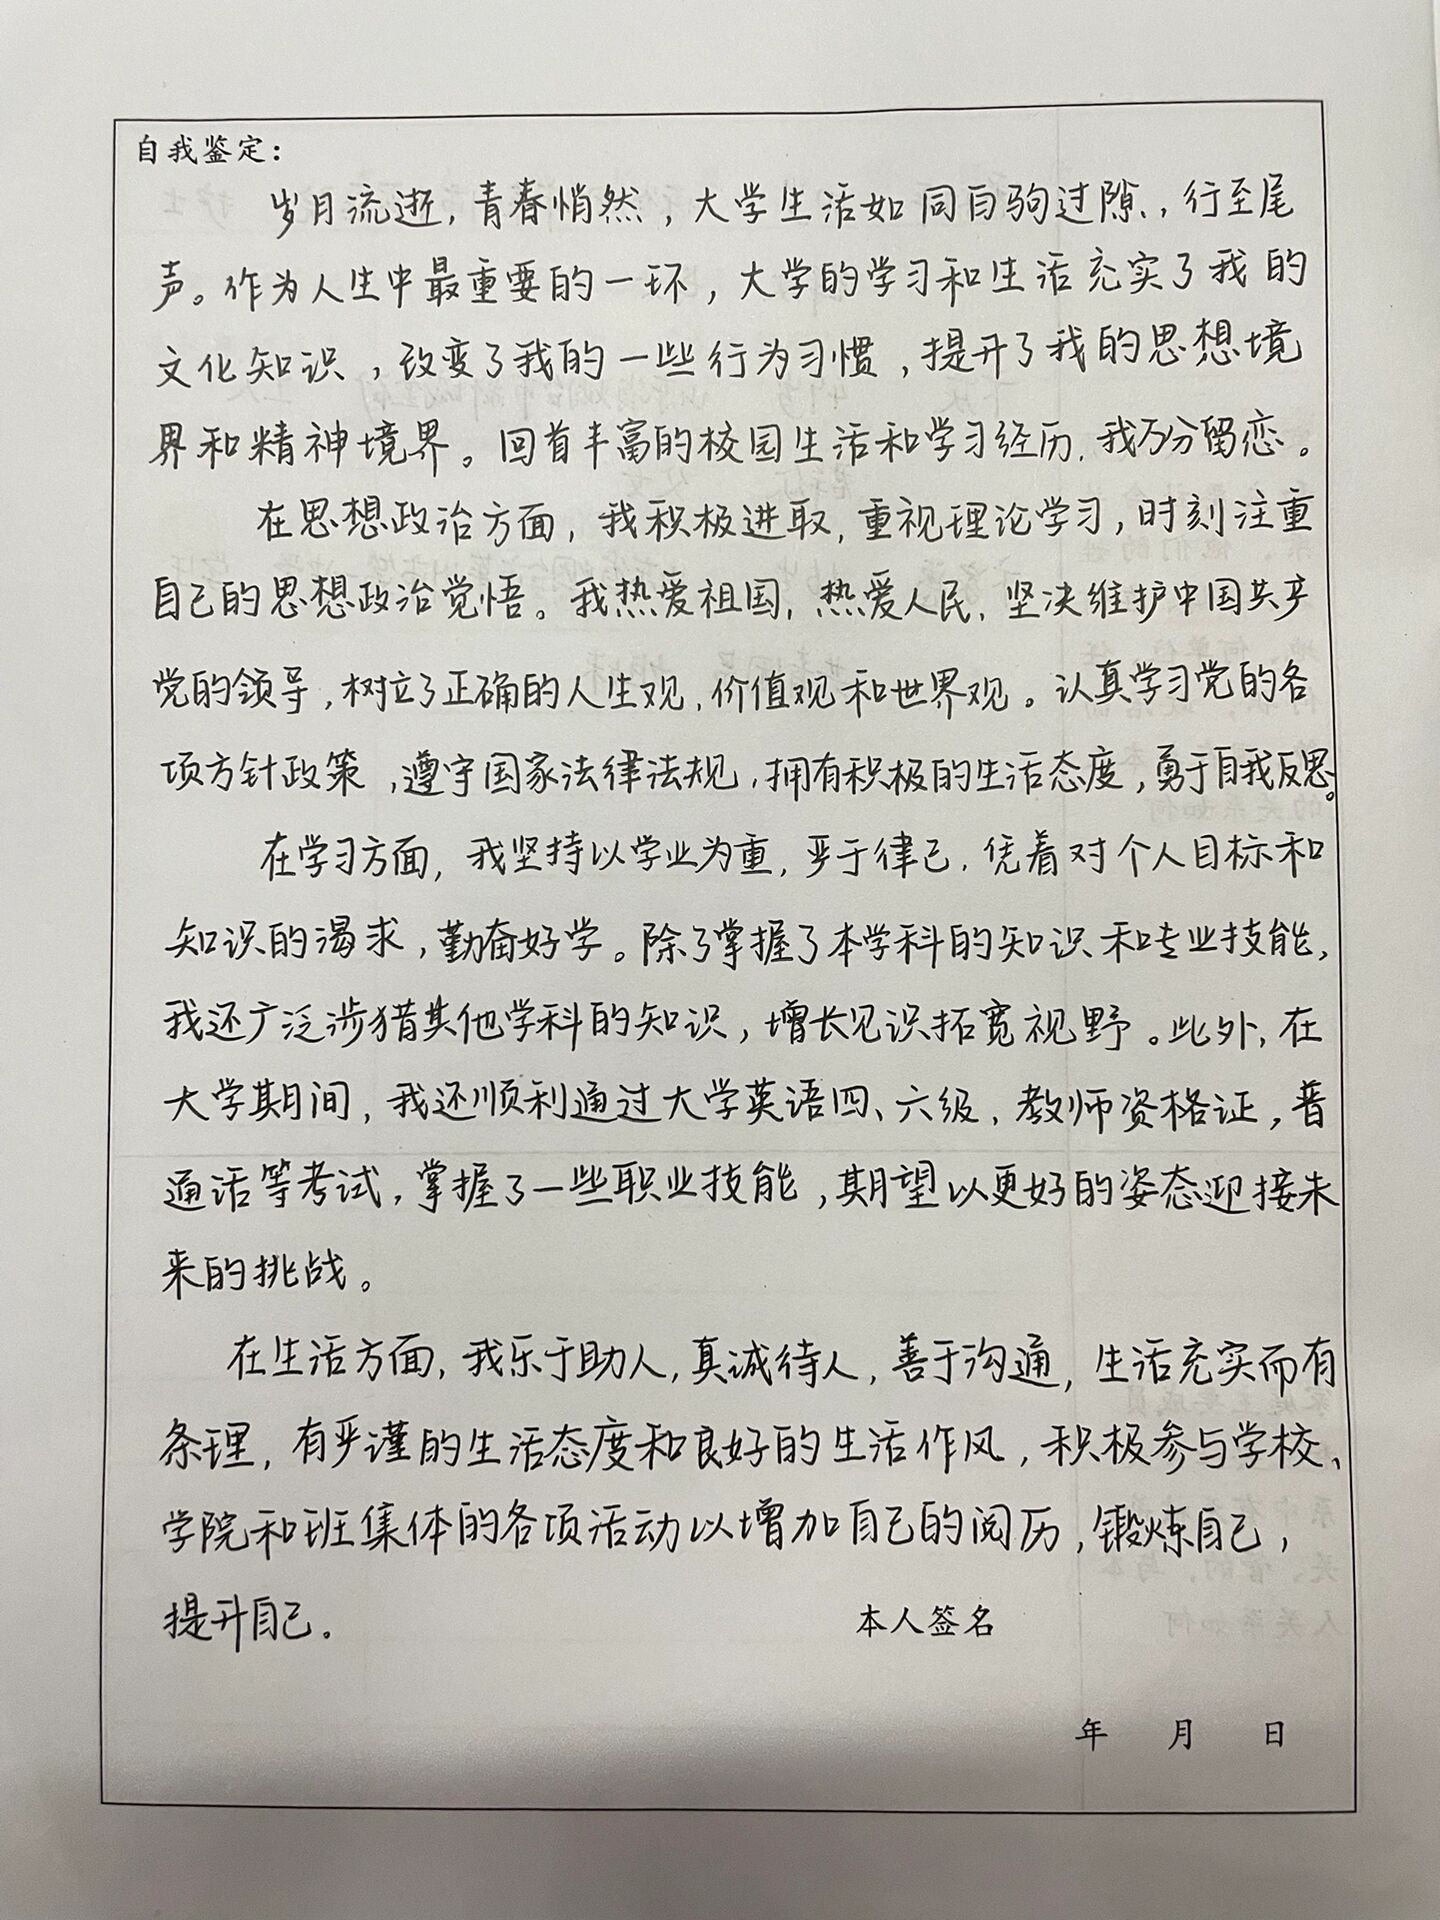 自我鉴定：
岁月流逝，青春悄然，大学生活如同白驹过隙，，行至尾
声。作为人生中最重要的一环，大学的学习和生活充实了我的
文化知识，改变了我的一些行为习惯，提升了我的思想境
界和精神境界。回首丰富的校园生活和学习经历，我万分留恋。
在思想政治方面，我积极进取，重视理论学习，时刻注重
自己的思想政治觉悟。我热爱祖国，热爱人民，坚决维护中国共产
党的领导，树立了正确的人生观，价值观和世界观。认真学习党的各
项方针政策，遵守国家法律法规，拥有积极的生活态度，勇于自我反思。
在学习方面，我坚持以学业为重，严于律己，凭着对个人目标和
知识的渴求，勤奋好学。除了掌握了本学科的知识和专业技能，
我还广泛涉猎其他学科的知识，增长见识拓宽视野。此外，在
大学期间，我还顺利通过大学英语四、六级，教师资格证，普
通话等考试，掌握了一些职业技能，期望以更好的姿态迎接未
来的挑战。
在生活方面，我乐于助人，真诚待人，善于沟通，生活充实而有
条理，有严谨的生活态度和良好的生活作风，积极参与学校、
学院和班集体的各项活动以增加自己的阅历，锻炼自己，
提升自己。
本人签名
年 月 日